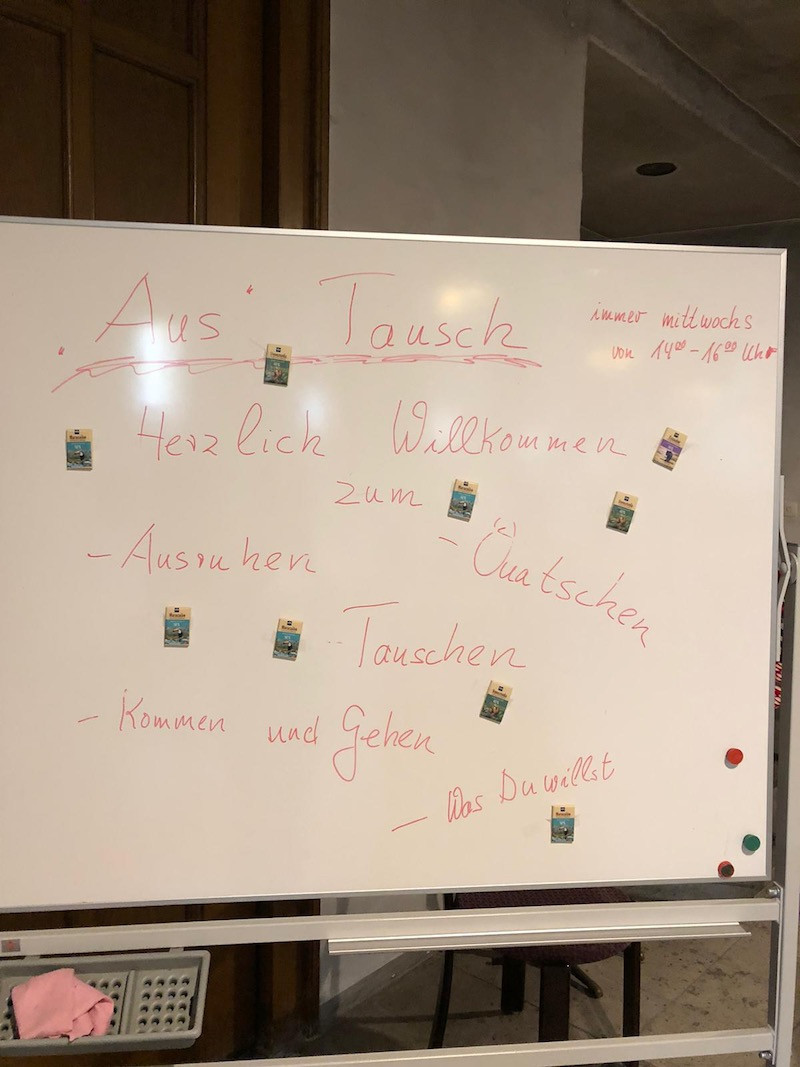 „Aus“ Tausch
immer mittwochs
von 14⁰⁰ - 16⁰⁰ Uhr
Herzlich Willkommen
zum
- Ausruhen
- Quatschen
- Tauschen
- Kommen und Gehen
- Was Du willst